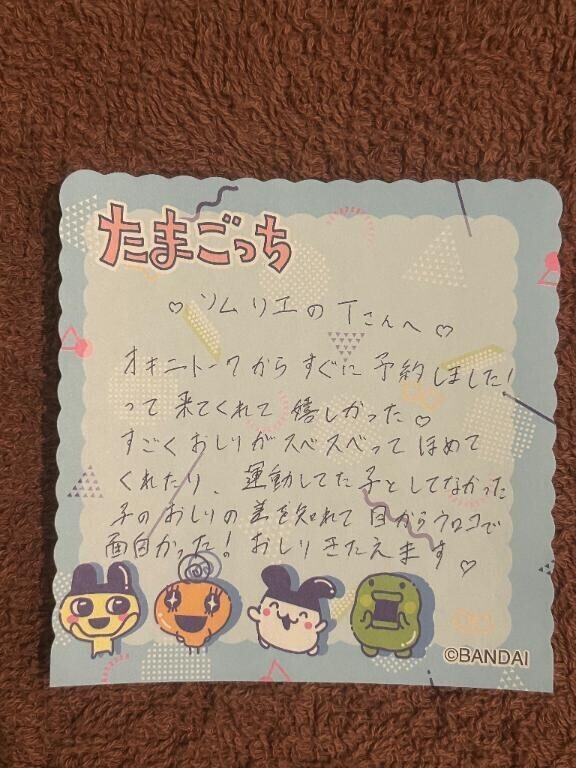 たまごっち
♡ ソムリエのTさんへ ♡
オキニトークからすぐに予約しました!
って来てくれて嬉しかった♡
すごくおしりがスベスベってほめて
くれたり、運動してた子としてなかった
子のおしりの差を知れて目からウロコで
面白かった!おしりきたえます♡
©BANDAI